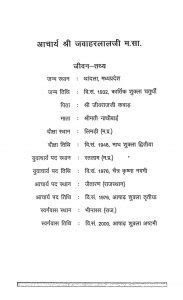 आचार्य श्री जवाहरलालजी म.सा.
जीवन-तथ्य
जन्म स्थान : थांदला, मध्यप्रदेश
जन्म तिथि : वि.सं. 1932, कार्तिक शुक्ला चतुर्थी
पिता : श्री जीवराजजी कवाड़
माता : श्रीमती नाथीबाई
दीक्षा स्थान : लिमड़ी (म.प्र.)
दीक्षा तिथि : वि.सं. 1948, माघ शुक्ला द्वितीया
युवाचार्य पद स्थान : रतलाम (म.प्र.)
युवाचार्य पद तिथि : वि.सं. 1976, चैत्र कृष्णा नवमी
आचार्य पद स्थान : जैतारण (राजस्थान)
आचार्य पद तिथि : वि.सं. 1976, आषाढ़ शुक्ला तृतीया
स्वर्गवास स्थान : भीनासर (राज.)
स्वर्गवास तिथि : वि.सं. 2000, आषाढ़ शुक्ला अष्टमी